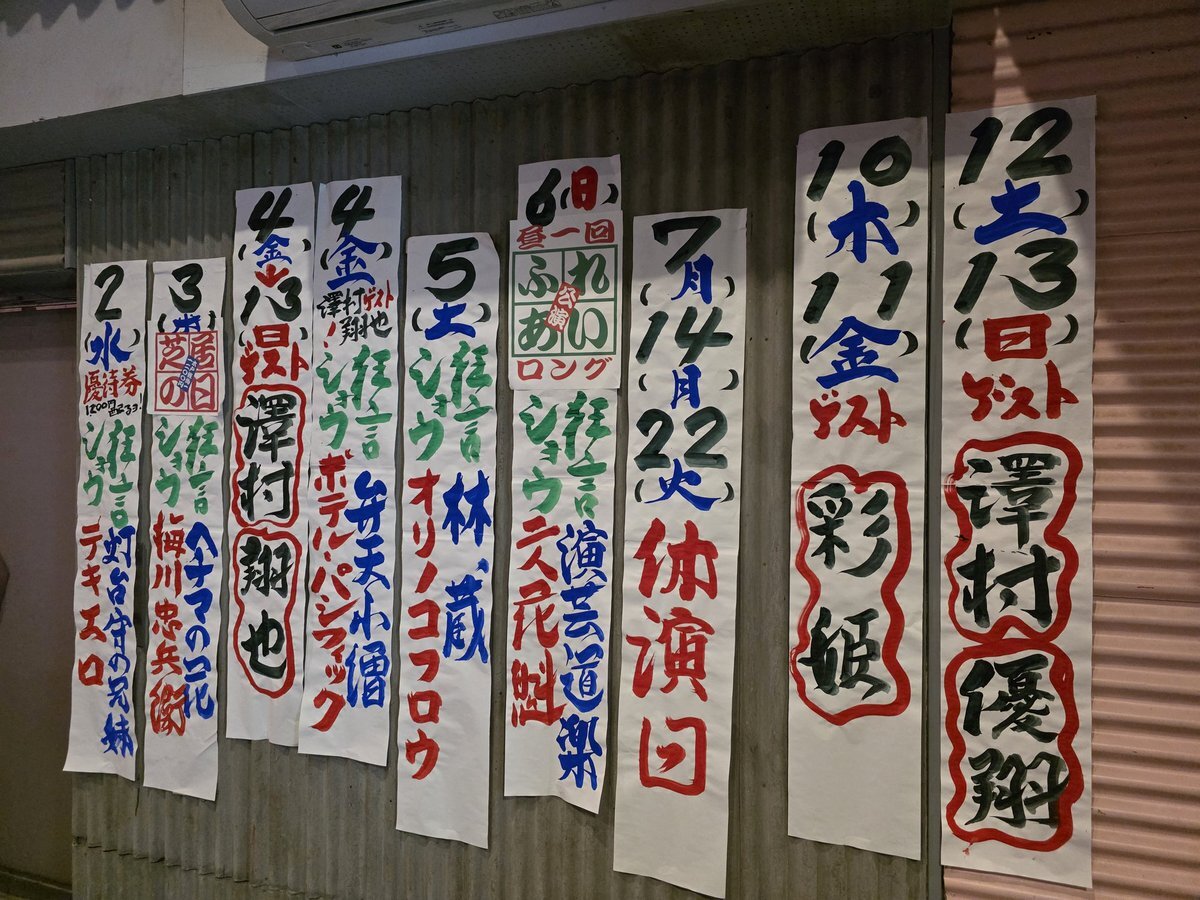 2
水
優待券
1200円配るヨ!
狂言
灯台守の兄妹
ショウ
テキエロ
3
(木)
芝居の日
狂言
ヘナマの一花
ショウ
梅川忠兵衛
4
(金)
13
日
ゲスト
澤村
翔也
4
(金)
澤村翔也
ゲスト
!
狂言
弁天小僧
ショウ
ボテル・パシフィック
5
(土)
狂言
林蔵
ショウ
オリノコフロウ
6(日)
昼一回
ふれあい
公演
ロング
狂言
演芸道楽
ショウ
二人花魁
7
(月)
14
(月)
22
(火)
休演日
10
(木)
11
(金)
ゲスト
彩姫
12
(土)
13
(日)
ゲスト
澤村
優翔